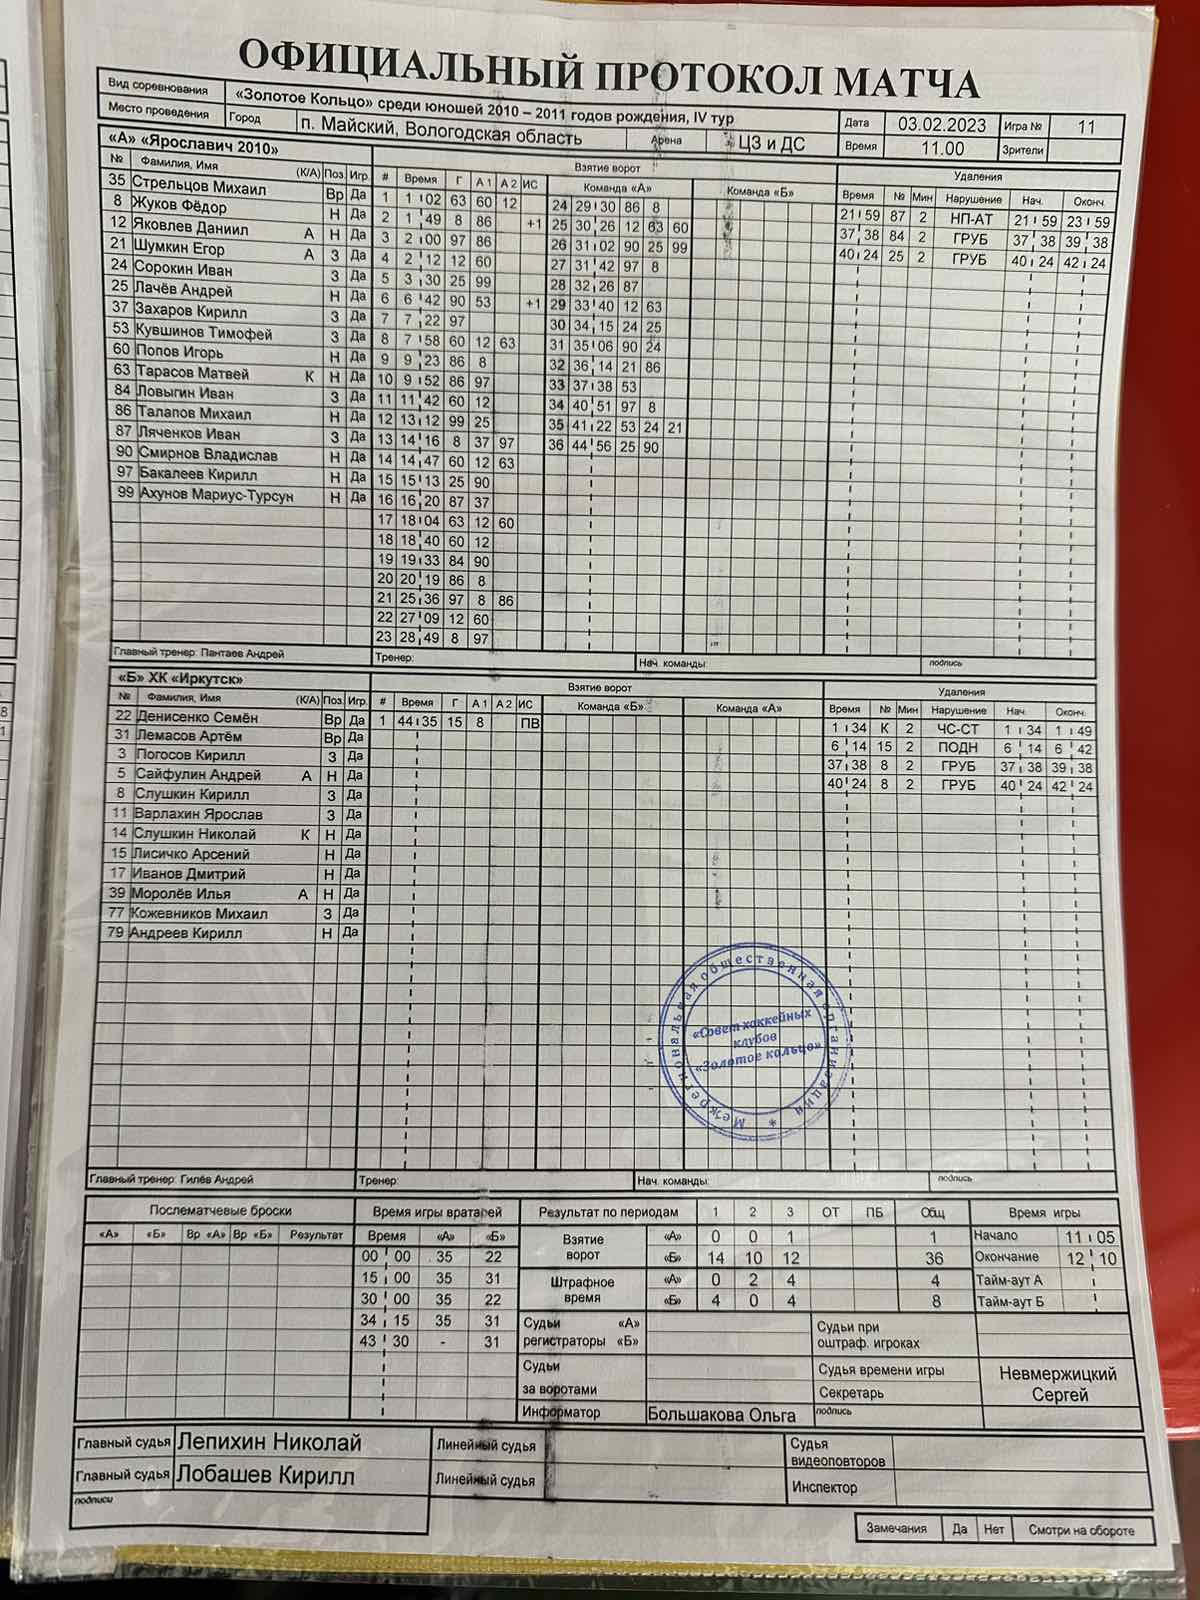 ОФИЦИАЛЬНЫЙ ПРОТОКОЛ МАТЧА
Вид соревнования «Золотое Кольцо» среди юношей 2010 – 2011 годов рождения, IV тур Дата 03.02.2023 Игра № 11
Место проведения Город п. Майский, Вологодская область Арена ЦЗ и ДС Время 11.00 Зрители
«А» «Ярославич 2010» Взятие ворот Удаления
№ Фамилия, Имя (К/А) Поз. Игр. # Время Г А 1 А 2 ИС Команда «А» Команда «Б» Время № Мин Нарушение Нач. Оконч.
35 Стрельцов Михаил Вр Да 1 1 02 63 60 12 24 29 30 86 8 21 59 87 2 НП-АТ 21 59 23 59
8 Жуков Фёдор Н Да 2 1 49 8 86 +1 25 30 26 12 63 60 37 38 84 2 ГРУБ 37 38 39 38
12 Яковлев Даниил А Н Да 3 2 00 97 86 26 31 02 90 25 99 40 24 25 2 ГРУБ 40 24 42 24
21 Шумкин Егор А З Да 4 2 12 12 60 27 31 42 97 8
24 Сорокин Иван З Да 5 3 30 25 99 28 32 26 87
25 Лачёв Андрей Н Да 6 6 42 90 53 +1 29 33 40 12 63
37 Захаров Кирилл З Да 7 7 22 97 30 34 15 24 25
53 Кувшинов Тимофей З Да 8 7 58 60 12 63 31 35 06 90 24
60 Попов Игорь Н Да 9 9 23 86 8 32 36 14 21 86
63 Тарасов Матвей К Н Да 10 9 52 86 97 33 37 38 53
84 Ловыгин Иван З Да 11 11 42 60 12 34 40 51 97 8
86 Талапов Михаил Н Да 12 13 12 99 25 35 41 22 53 24 21
87 Ляченков Иван З Да 13 14 16 8 37 97 36 44 56 25 90
90 Смирнов Владислав Н Да 14 14 47 60 12 63
97 Бакалеев Кирилл Н Да 15 15 13 25 90
99 Ахунов Мариус-Турсун Н Да 16 16 20 87 37
17 18 04 63 12 60
18 18 40 60 12
19 19 33 84 90
20 20 19 86 8
21 25 36 97 8 86
22 27 09 12 60
23 28 49 8 97
Главный тренер: Пантаев Андрей Тренер: Нач. команды: подпись
«Б» ХК «Иркутск» Взятие ворот Удаления
№ Фамилия, Имя (К/А) Поз. Игр. # Время Г А 1 А 2 ИС Команда «Б» Команда «А» Время № Мин Нарушение Нач. Оконч.
22 Денисенко Семён Вр Да 1 44 35 15 8 ПВ 1 34 К 2 ЧС-СТ 1 34 1 49
31 Лемасов Артём Вр Да 6 14 15 2 ПОДН 6 14 6 42
3 Погосов Кирилл З Да 37 38 8 2 ГРУБ 37 38 39 38
5 Сайфулин Андрей А Н Да 40 24 8 2 ГРУБ 40 24 42 24
8 Слушкин Кирилл З Да
11 Варлахин Ярослав З Да
14 Слушкин Николай К Н Да
15 Лисичко Арсений Н Да
17 Иванов Дмитрий Н Да
39 Моролёв Илья А Н Да
77 Кожевников Михаил З Да
79 Андреев Кирилл Н Да
Межрегиональная общественная организация
«Совет хоккейных
клубов
«Золотое кольцо»
Главный тренер: Гилёв Андрей Тренер: Нач. команды: подпись
Послематчевые броски Время игры вратарей Результат по периодам 1 2 3 ОТ ПБ Общ Время игры
«А» «Б» Вр «А» Вр «Б» Результат Время «А» «Б» Взятие ворот «А» 0 0 1 1 Начало 11 05
00 00 35 22 «Б» 14 10 12 36 Окончание 12 10
15 00 35 31 Штрафное время «А» 0 2 4 4 Тайм-аут А
30 00 35 22 «Б» 4 0 4 8 Тайм-аут Б
34 15 35 31 Судьи «А» регистраторы «Б» Судьи при оштраф. игроках
43 30 - 31 Судьи за воротами Судья времени игры Невмержицкий Сергей
Секретарь
Информатор Большакова Ольга подпись
Главный судья Лепихин Николай Линейный судья Судья видеоповторов
Главный судья Лобашев Кирилл Линейный судья Инспектор
подписи
Замечания Да Нет Смотри на обороте